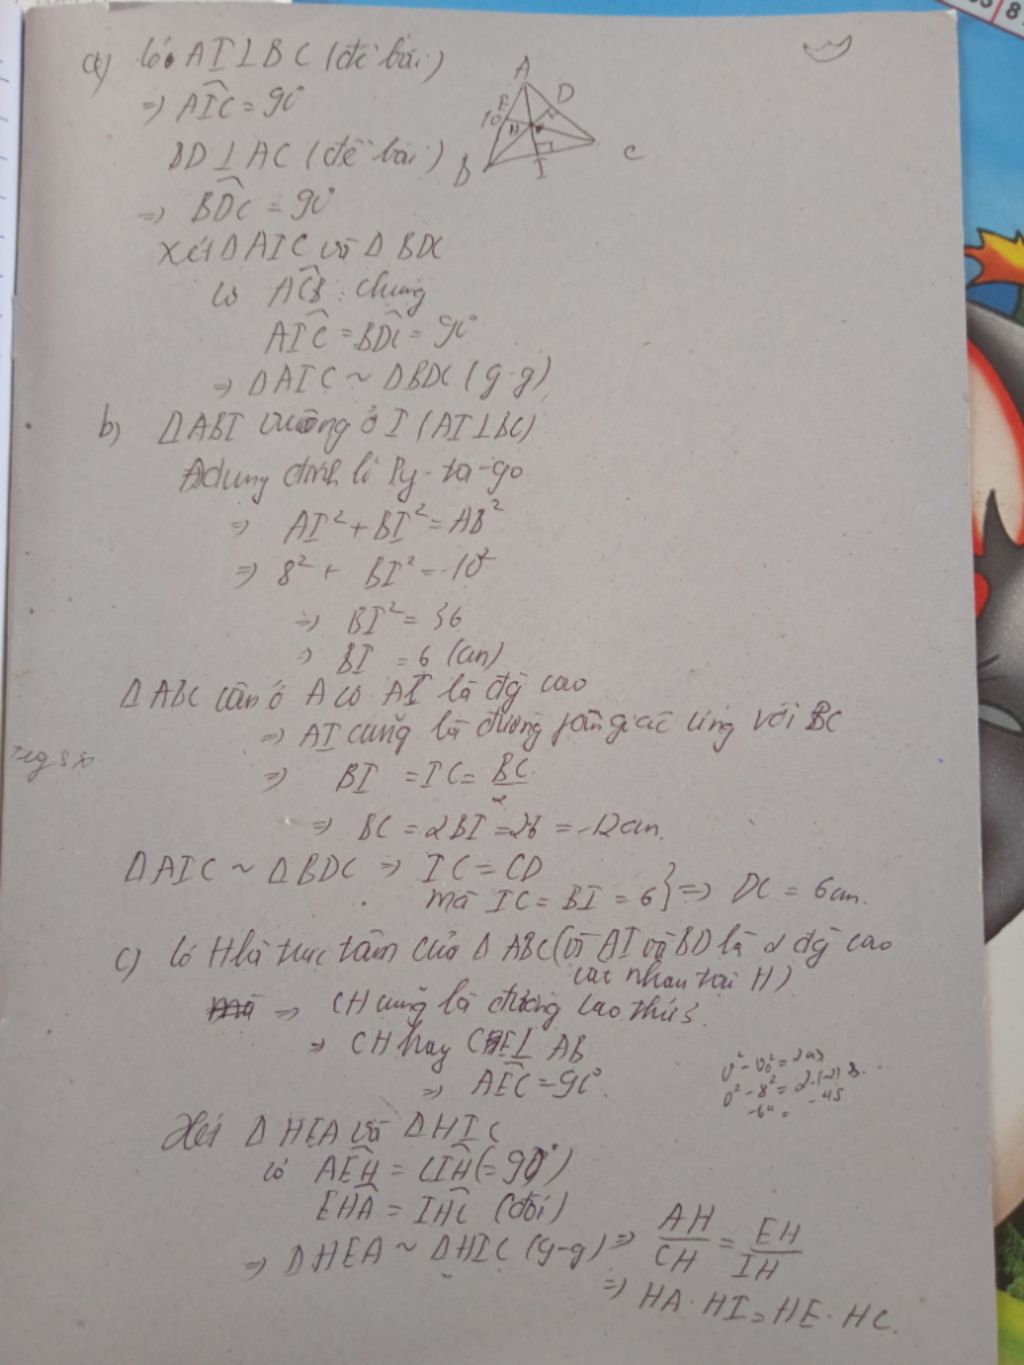 a) Có AI⊥BC (đề bài)
⇒ AIC = 90°
BD⊥AC (đề bài)
⇒ BDC = 90°
Xét Δ AIC và Δ BDC
có ACB : chung
AIC = BDC = 90°
⇒ ΔAIC ~ ΔBDC (g-g)
A
D
E
10
H
B
I
C
b) ΔABI vuông ở I (AI⊥BC)
Adụng định lí Py-ta-go
⇒ AI² + BI² = AB²
⇒ 8² + BI² = 10²
⇒ BI² = 36
⇒ BI = 6 (cm)
Δ ABC cân ở A có AI là đg cao
⇒ AI cũng là đường phân giác ứng với BC
⇒ BI = IC = BC/2
⇒ BC = 2BI = 2.6 = 12cm.
Δ AIC ~ Δ BDC ⇒ IC = CD
mà IC = BI = 6 } ⇒ DC = 6cm.
c) Có H là trực tâm của Δ ABC (vì AI và BD là 2 đg cao
cắt nhau tại H)
⇒ CH cũng là đường cao thứ 3.
⇒ CH hay CE⊥ AB
⇒ AEC = 90°.
v² - v₀² = 2as
0² - 8² = 2.(-2).s
Xét Δ HEA và Δ HIC
có AEH = CIH (= 90°)
EHA = IHC (đối)
⇒ ΔHEA ~ ΔHIC (g-g) ⇒ AH/CH = EH/IH
⇒ HA . HI = HE . HC.